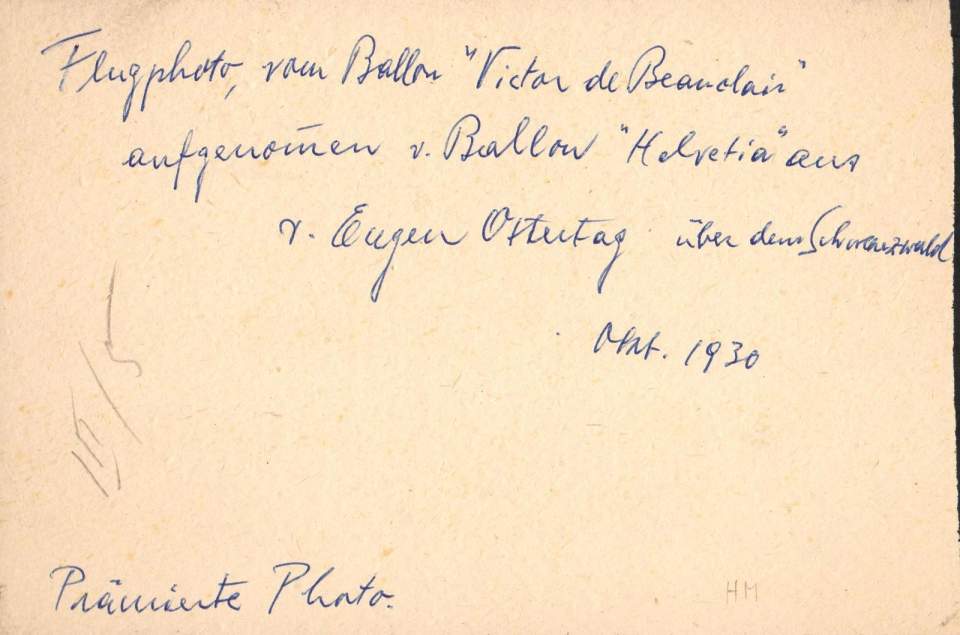 Flugphoto, vom Ballon "Victor de Beauclair"
aufgenom̅en v. Ballon "Helvetia" aus
v. Eugen Ostertag über dem Schwarzwald
Okt. 1930
Prämierte Photo.
HM